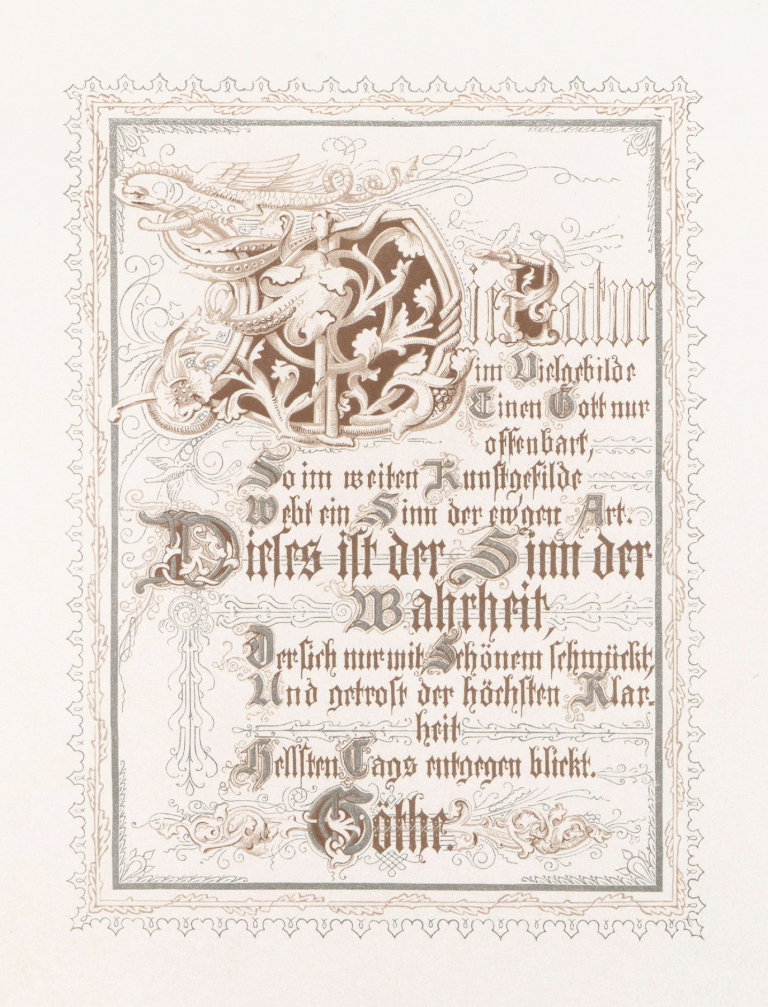 Die Natur
im Vielgebilde
Einen Gott nur
offenbart,
So im weiten Kunstgefilde
Webt ein Sinn der ew'gen Art.
Dieses ist der Sinn der
Wahrheit,
Der sich nur mit Schönem schmückt,
Und getrost der höchsten Klar-
heit
Hellsten Tags entgegen blickt.
Göthe.